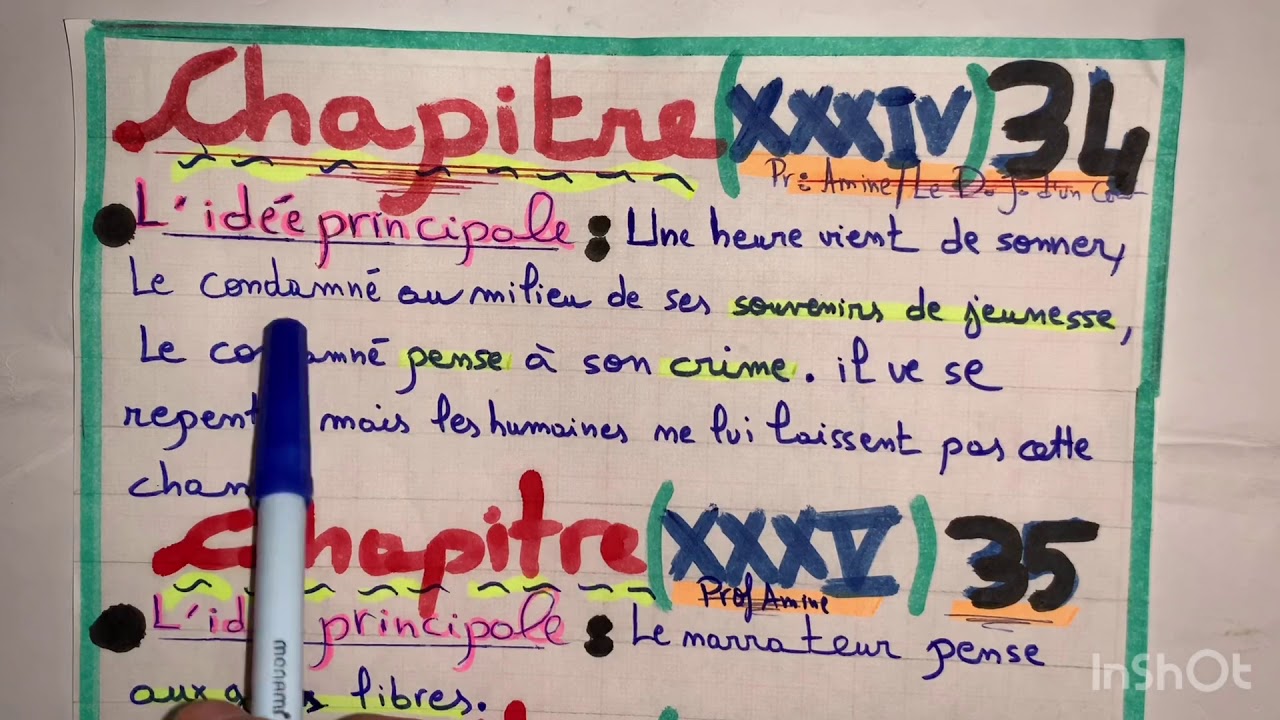 Chapitre (XXXIV) 34
Pr: Amine / Le De Jo d'un Con
L'idée principale : Une heure vient de sonner,
Le condamné au milieu de ses souvenirs de jeunesse,
Le co amné pense à son crime. il ve se
repent mais les humaines ne lui laissent pas cette
chan
Chapitre (XXXV) 35
Prof Amine
L'id principale : Le narrateur pense
aux libres.
monami
InShOt